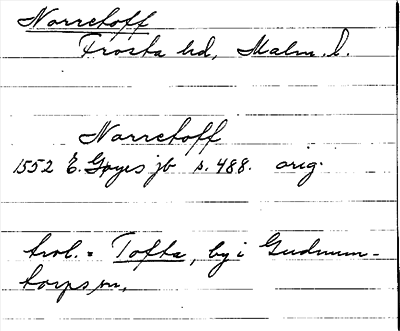 Norrehoff
Frosta hd, Malm. l.
Norrehoff
1552 E. Gøyes jb s. 488. orig.
trol. = Tofta, by i Gudmun-
torps sn,